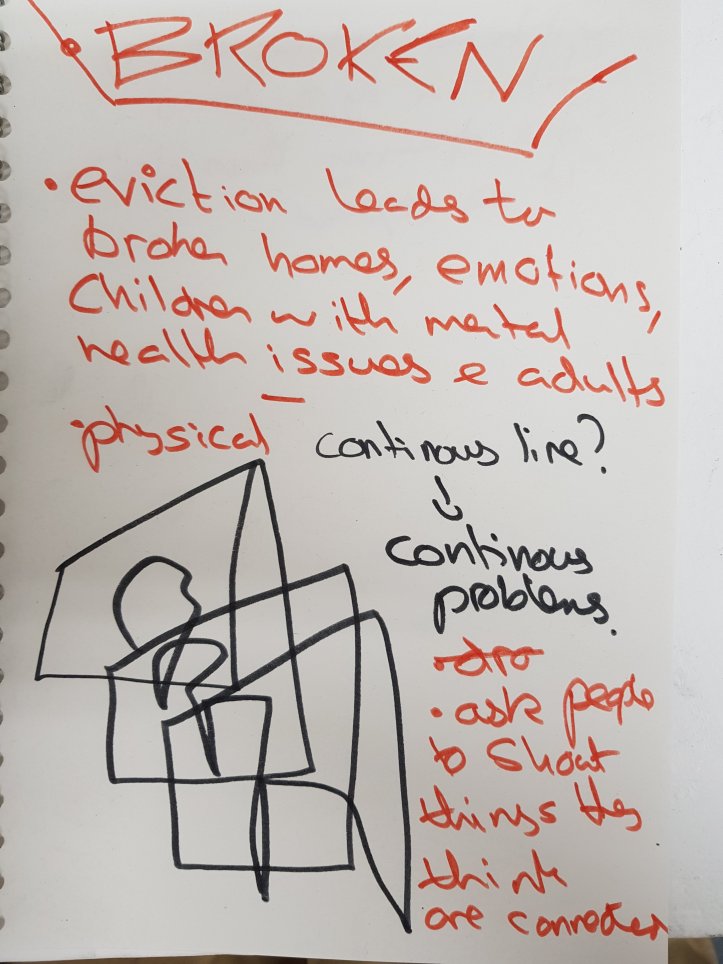 • BROKEN
• eviction leads to
broken homes, emotions,
Children with mental
health issues e adults
• physical
continous line?
↓
continous
problems.
• dro
• ask people
to Shout
things they
think
are connected